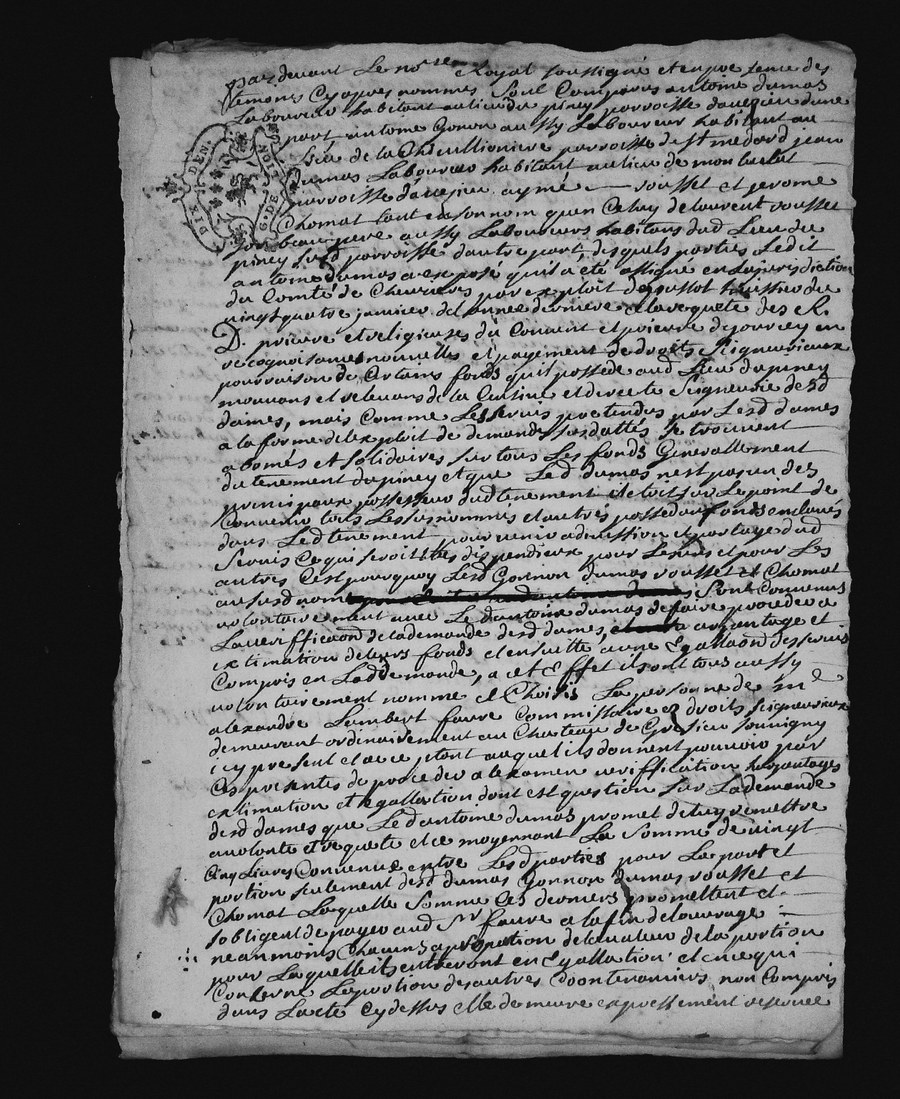 par devant Le no.re Royal soussigné et en presence des
temoins cy apres nommes Sont Comparus antoine dumas
Laboureur habitant au lieu du piney parroisse d'une
part antoine Gonon aussy Laboureur habitant au
Lieu de la parroisse de St medard jean
dumas Laboureur habitant au lieu de
parroisse aymé rousset et jerome
Chomat tant en son nom qu'en Celuy de laurent rousset
beau pere aussy Laboureurs habitans dud Lieu du
piney susd parroisse d'autre part, desquels parties Ledit
antoine dumas a exposé qu'il a été assigné en la jurisdiction
du Comté de Chevrieres par exploit de huissier du
vingt quatre janvier de l'année derniere a la requete des R.
D. prieure et religieuses du Couvent et prieuré de jourcey en
recognoissances nouvelles et payement de droits Seigneuriaux
pour raison de Certains fonds qu'il possede aud Lieu du piney
mouvans et relevans de la Censive et directe Seigneurie desd
dames, mais Comme Les servis pretendus par Lesd dames
a la forme de l'exploit de demande susdatté se trouvent
abonés et solidaires sur tous Les fonds Generallement
du tenement du piney et que Led dumas n'est pas un des
principaux possesseurs dud tenement il etoit sur Le point de
Convenir tous Les susnommés et autres possedans fonds enclavés
dans Led tenement pour venir a division et partage dud
Servis Ce qui seroit tres dispendieux pour Les uns et pour Les
autres C'est pourquoy Lesd Gonon dumas rousset et Chomat
au susd nom Sont Convenus
volontairement avec Led antoine dumas de faire proceder a
La veriffication de la demande desd dames, arpentage et
extimation de leurs fonds et ensuitte a une Egallation des servis
Compris en Lad demande, a cet Effet ils ont tous aussy
volontairement nommé et Choisis La personne de m.e
alexandre Lambert favre Commissaire ez droits seigneuriaux
demeurant ordinairement au Chateau de
icy present et acceptant auquel ils donnent pouvoir par
Ces presentes de proceder a l'examen veriffication
extimation et egallation dont est question sur La demande
desd dames que Led antoine dumas promet de luy remettre
a volonté et requete et ce moyennant La Somme de vingt
Cinq Livres Convenue entre Lesd parties pour La part et
portion seulement desd dumas Gonnon dumas rousset et
Chomat Laquelle Somme Ces derniers promettent et
s'obligent de payer aud Sr favre a la fin de l'ouvrage
neanmoins Chacuns a proration de la valeur de la portion
pour Laquelle ils entreront en Egallation et en ce qui
Conserne La portion des autres Cotenanciers non Compris
dans L'acte Cy dessus elle demeure expressement reservée
DIX DEN.
G. DE NOT.